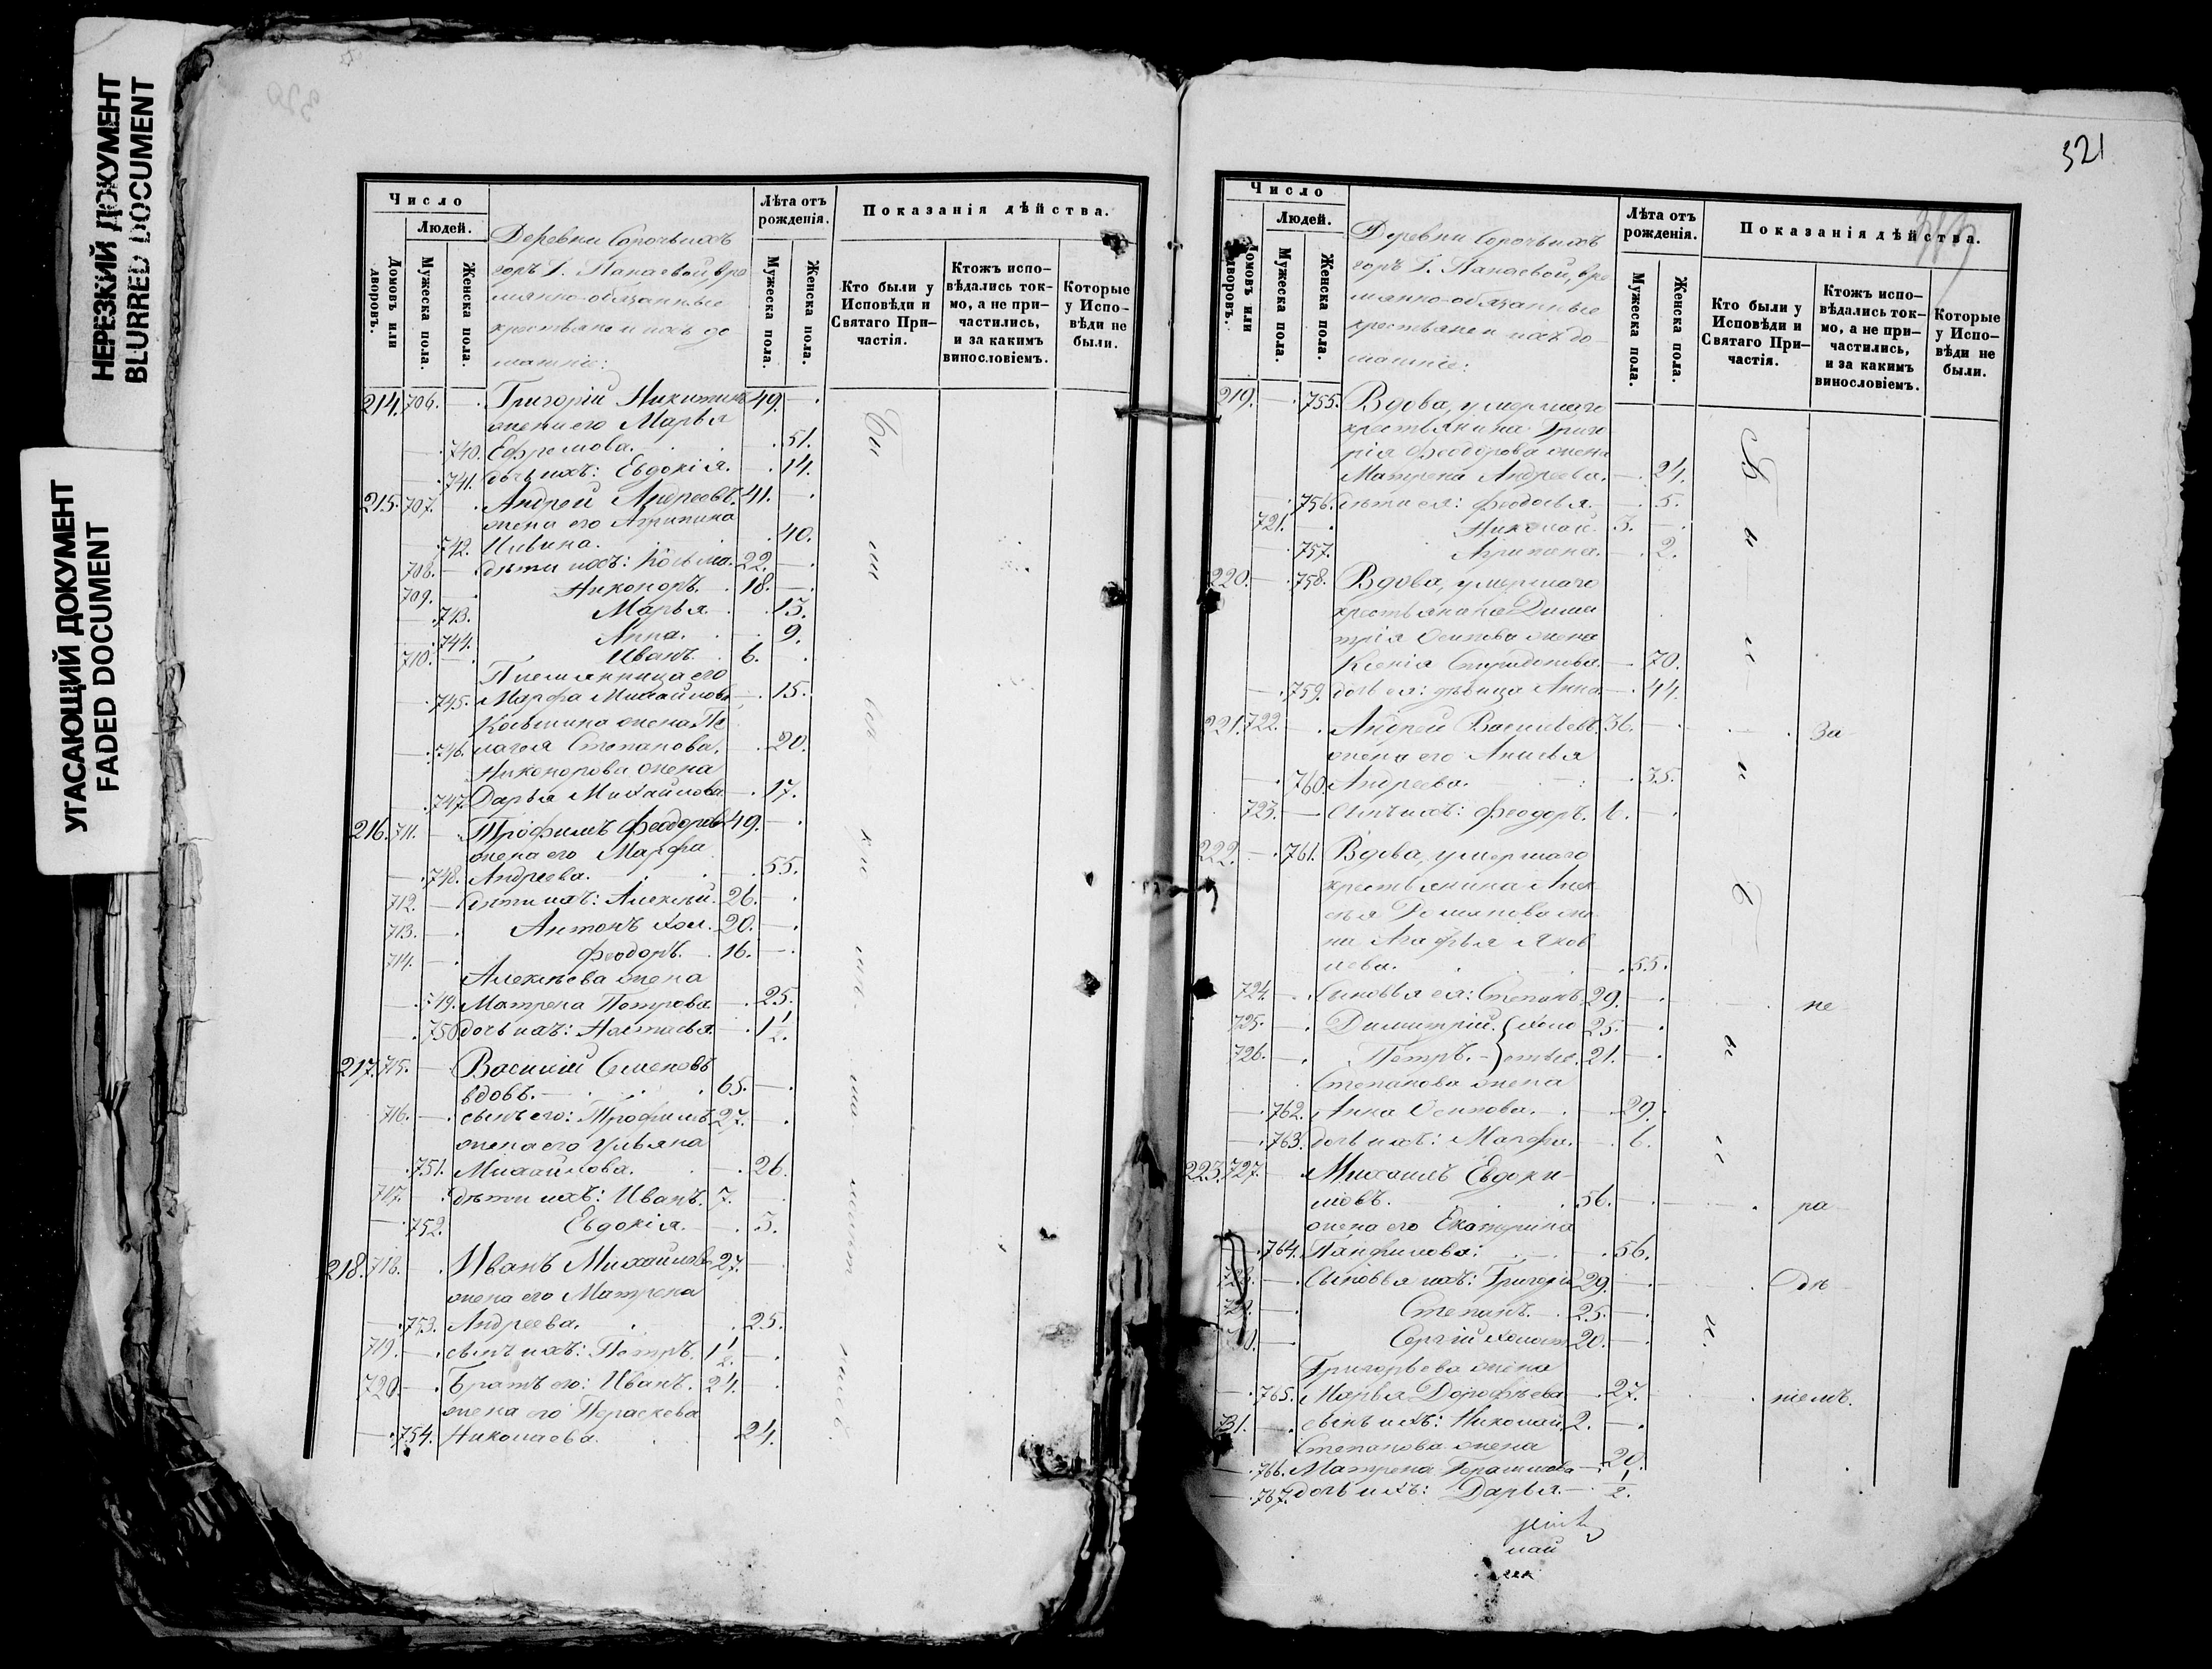 НЕРЕЗКИЙ ДОКУМЕНТ
BLURRED DOCUMENT
УГАСАЮЩИЙ ДОКУМЕНТ
FADED DOCUMENT
Число
Людей.
Домовъ или дворовъ.
Мужеска пола.
Женска пола.
Деревни Сорочьихъ
горъ Г. Панаевой, вре
мянно-обязанные
крестьяне и ихъ до
машніе:
Лѣта отъ рожденія.
Мужеска пола.
Женска пола.
Показанія дѣйства.
Кто были у Исповѣди и Святаго При-частія.
Ктожъ испо-вѣдались ток-мо, а не при-частились, и за какимъ винословіемъ.
Которые у Испо-вѣди не были.
214. 706. — Григорій Никитинъ 49. —
жена его Марья
— 740. Ефремова. — 51.
— 741. дочь ихъ: Евдокія. — 14.
215. 707. — Андрей Андреевъ. 41. —
жена его Агрипина
— 742. Ильина. 40.
708. — дѣти ихъ: Косьма. 22. —
709. — Никоноръ. 18. —
— 743. Марья. 13.
— 744. Анна. 9.
710. — Иванъ. 6. —
Племянница его
— 745. Марфа Михайлова — 15.
Косьмина жена Пе
— 746. лагея Степанова. — 20.
Никонорова жена
— 747. Дарья Михайлова — 17.
216. 711. — Трофимъ Феодоровъ 49. —
жена его Марфа
— 748. Андреева. — 55.
712. — дѣти ихъ: Алексѣй. 26. —
713. — Антонъ хол. 20. —
714. — Феодоръ. 16. —
Алексѣева жена
— 749. Матрена Петрова. — 25.
— 750. дочь ихъ: Настасья. — 1 1/2.
217. 715. — Василій Семеновъ
вдовъ. 65. —
716. — сынъ его: Трофимъ 27. —
жена его Ульяна
— 751. Михайлова. — 26.
717. — дѣти ихъ: Иванъ. 7. —
— 752. Евдокія. — 3.
218. 718. — Иванъ Михайловъ 27. —
жена его Матрена
— 753. Андреева. 25.
719. — сынъ ихъ: Петръ. 1 1/2. —
720. — Братъ его: Иванъ. 24. —
жена его Параскева
— 754. Николаева. 24.
321
Число
Людей.
Домовъ или дворовъ.
Мужеска пола.
Женска пола.
Деревни Сорочьихъ
горъ Г. Панаевой, вре
мянно-обязанные
крестьяне и ихъ до-
машніе:
Лѣта отъ рожденія.
Мужеска пола.
Женска пола.
Показанія дѣйства.
Кто были у Исповѣди и Святаго При-частія.
Ктожъ испо-вѣдались ток-мо, а не при-частились, и за какимъ винословіемъ.
Которые у Испо-вѣди не были.
219. — 755. Вдова, умершаго
крестьянина Григо
рія Феодорова жена
Матрена Андреева. — 24.
— 756. дѣти ея: Феодосья. — 5.
721. — Николай. 3. —
— 757. Агрипина. — 2.
220. — 758. Вдова, умершаго
крестьянина Дими
трія Осипова жена
Ксенія Спиридонова. — 70.
— 759. дочь ея: дѣвица Анна — 44.
221. 722. — Андрей Васильевъ. 36. — за
жена его Анисья
— 760. Андреева. 35.
723. — Сынъ ихъ: Феодоръ. 1. —
222. — 761. Вдова, умершаго
крестьянина Алек
сѣя Демьянова же
на Агафья Яков
лева. 55.
724. — Сыновья ея: Степанъ. 29. — не
725. — Димитрій. } холо 25. —
726. — Петръ. } стые. 21. —
Степанова жена
— 762. Анна Осипова. — 29.
— 763. дочь ихъ: Марфа. — 6.
223. 727. — Михаилъ Евдоки-
мовъ. 56. — ра
жена его Екатерина
— 764. Панфилова: — 56.
728. — Сыновья ихъ: Григорій 29. — дѣ
729. — Степанъ. 25. —
730. — Сергій холост 20. —
Григорьева жена
— 765. Марья Дорофѣева — 27. ніемъ.
731. — сынъ ихъ: Николай 2. —
Степанова жена
— 766. Матрена Герасимова — 20.
— 767. дочь ихъ: Дарья. — 1/2.